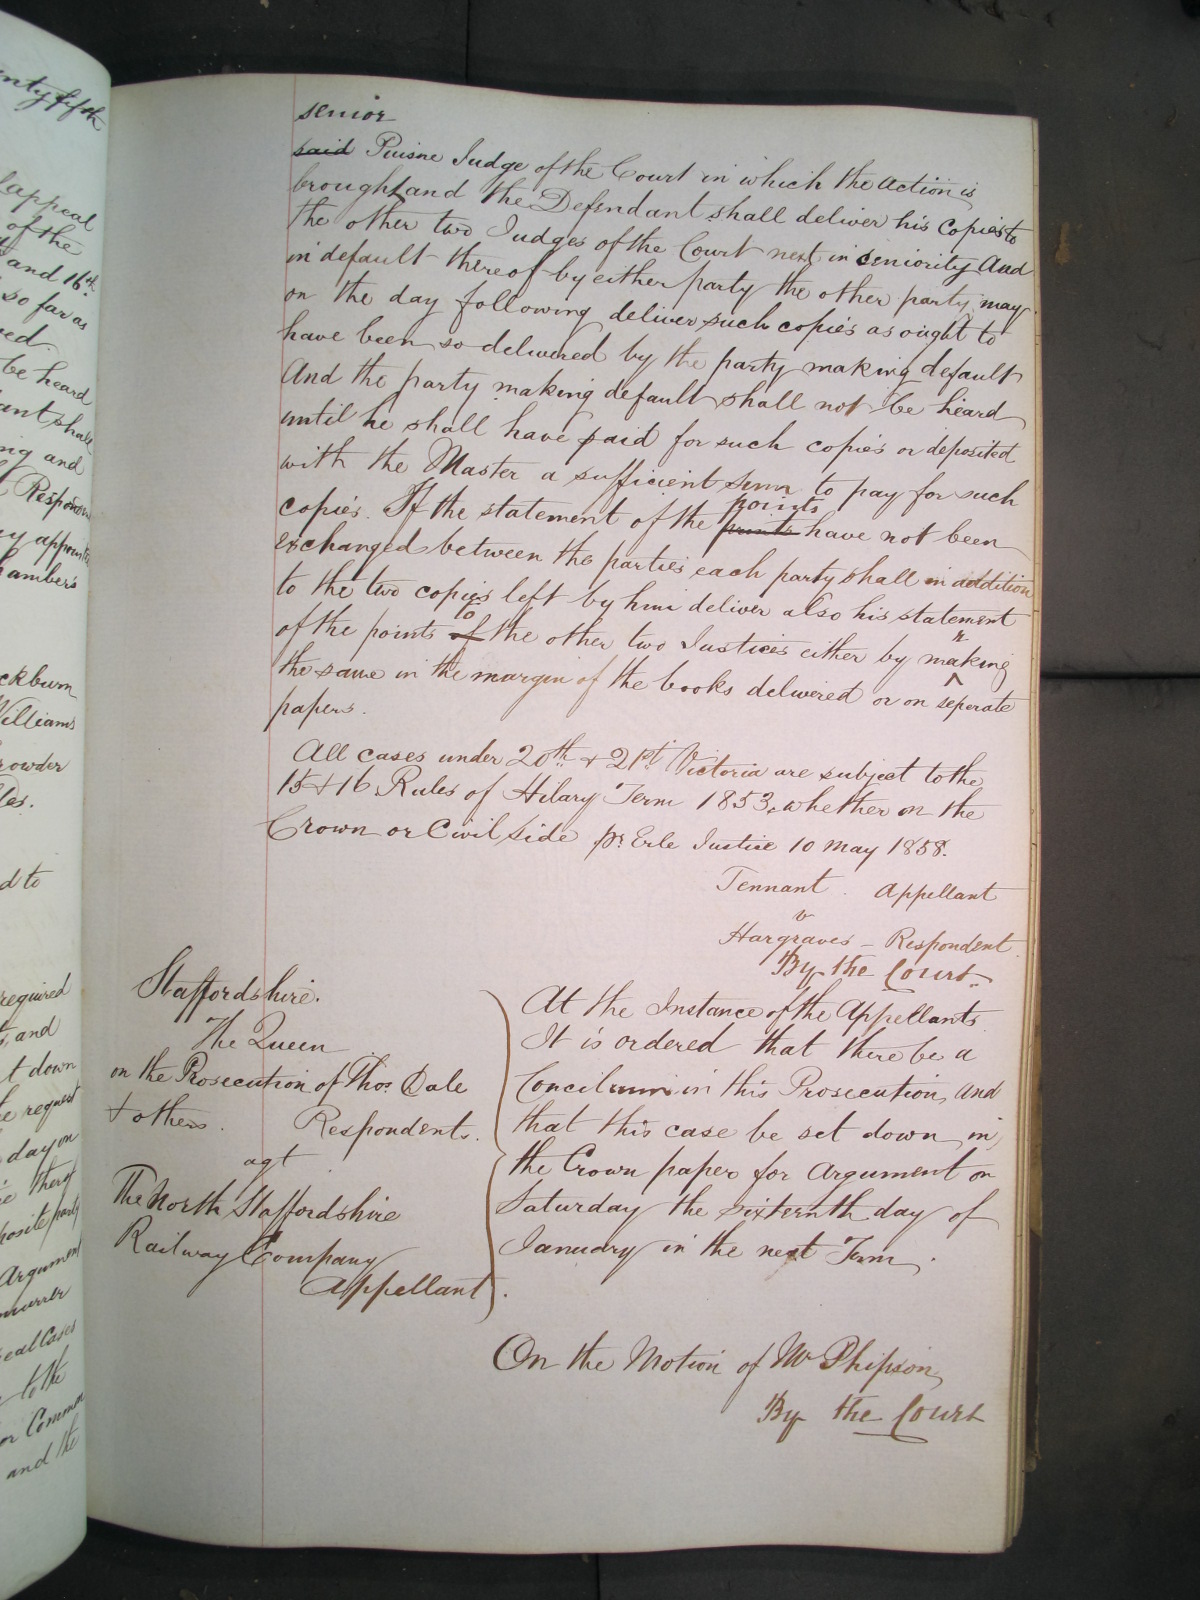 senior
said Puisne Judge of the Court in which the action is
brought and the Defendant shall deliver his copies to
the other two Judges of the Court next in seniority And
in default thereof by either party the other party may
on the day following deliver such copies as ought to
have been so delivered by the party making default
And the party making default shall not be heard
until he shall have paid for such copies or deposited
with the Master a sufficient sum to pay for such
points
copies. If the statement of the prints have not been
exchanged between the parties each party shall in addition
to the two copies left by him deliver also his statement
to
of the points of the other two Justices either by making
the same in the margin of the books delivered or on seperate
papers.
All cases under 20th & 21st Victoria are subject to the
15 & 16 Rules of Hilary Term 1853, whether on the
Crown or Civil side pr Erle Justice 10 May 1858.
Tennant . Appellant
v
Hargraves - Respondent
By the Court.
Staffordshire.
The Queen
on the Prosecution of Thos. Dale
& others. Respondents.
agt
The North Staffordshire
Railway Company
Appellant.
At the Instance of the Appellants.
It is ordered that there be a
Concilium in this Prosecution, and
that this case be set down in
the Crown paper for Argument on
Saturday the sixteenth day of
January in the next Term.
On the Motion of Mr Phipson,
By the Court
nty fifth
appeal
of the
and 16th
so far as
be heard
ant shall
ing and
Respon
appoint
ambers
ckburn
Williams
rowder
d to
required
and
t down
request
day on
posite party
Argument
murrer
eal Cases
to the
or Common
and the